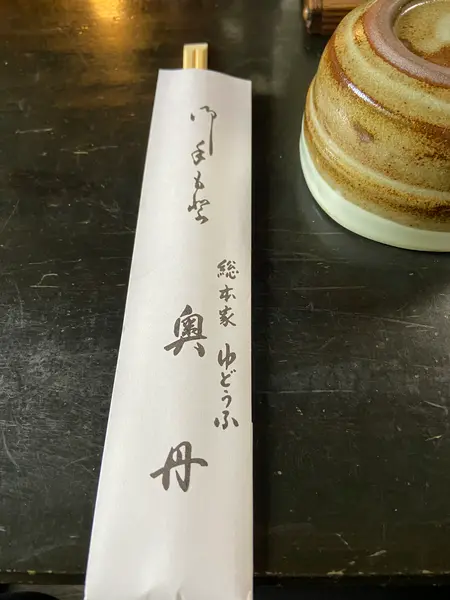 御手もと
総本家 ゆどうふ
奥丹